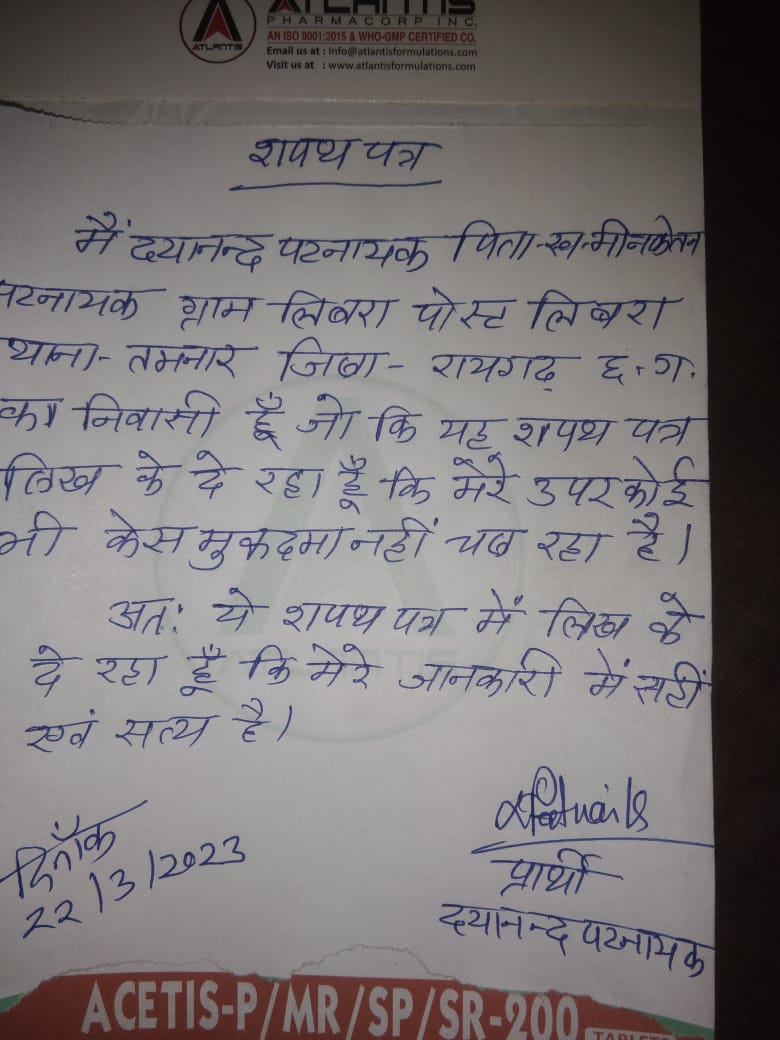 ATLANTIS
PHARMACORP INC.
AN ISO 9001:2015 & WHO-GMP CERTIFIED CO.
ATLANTIS
Email us at : Info@atlantisformulations.com
Visit us at : www.atlantisformulations.com
शपथ पत्र
मैं दयानन्द पटनायक पिता-स्व-मीनकेतन
पटनायक ग्राम लिबरा पोस्ट लिबरा
थाना- तमनार जिला- रायगढ़ छ.ग.
का निवासी हूँ जो कि यह शपथ पत्र
लिख के दे रहा हूँ कि मेरे उपर कोई
भी केस मुकदमा नहीं चल रहा है।
अतः ये शपथ पत्र में लिख के
दे रहा हूँ कि मेरे जानकारी में सहीं
एवं सत्य है।
दिनाँक
22/3/2023
प्रार्थी
दयानन्द पटनायक
ATLANTIS
ACETIS-P/MR/SP/SR-200
TABLETS